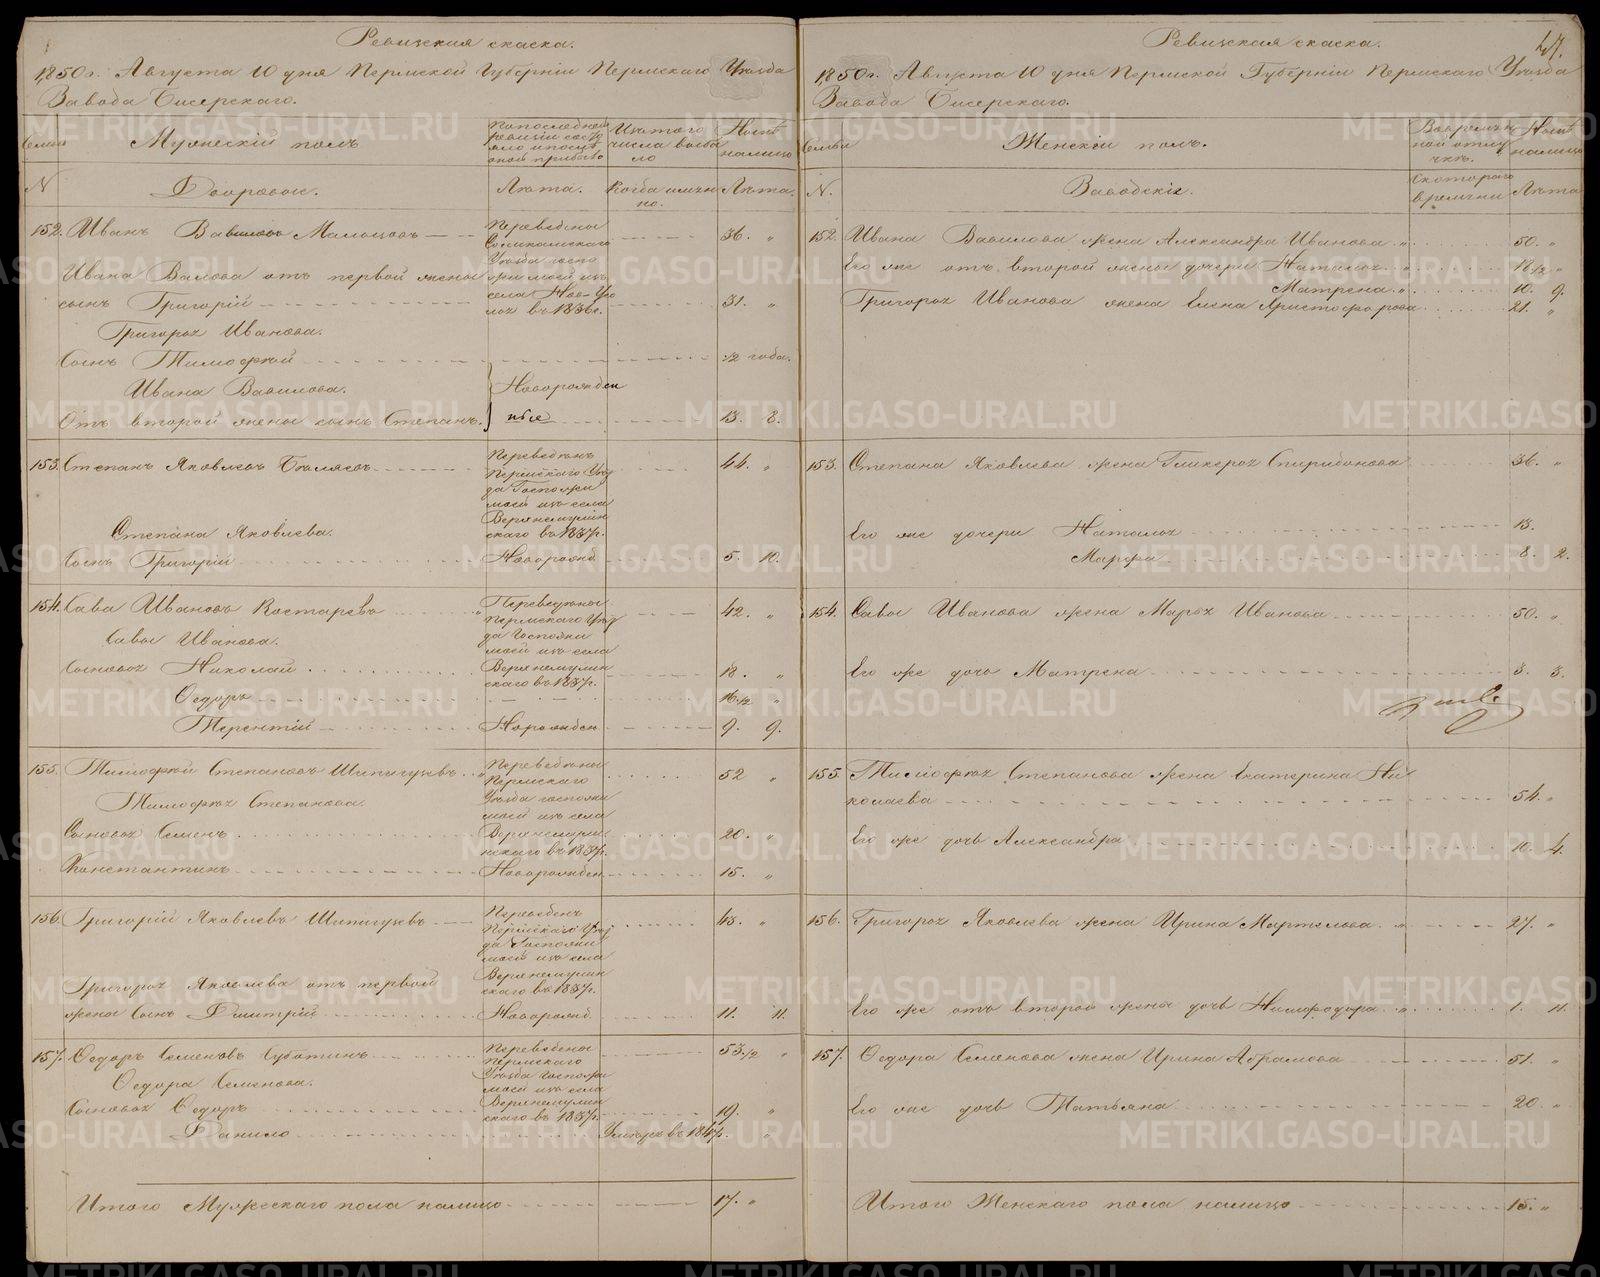 Ревизская скаска.
1850 г. Августа 10 дня Пермской Губерніи Пермскаго Уѣзда
Завода Бисерскаго.
Семьи
Мужескій полъ
По последней
ревизіи состо
яло и послѣ
оной прибыло
Изъ того
числа выбы
ло
Нынѣ
налицо
N
Дворовые.
Лѣта.
Когда имянно.
Лѣта.
152. Иванъ Вавиловъ Мальцовъ
Переведены
Соликамскаго
Уѣзда
36. "
Ивана Вавилова отъ первой жены
сынъ Григорій
села
въ 1836 г.
31. "
Григорья Иванова.
Сынъ Тимофей
1/2 года.
Ивана Вавилова.
Новорожден
Отъ второй жены сынъ Степанъ.
ные
13. 8.
153. Степанъ Яковлевъ Бѣляевъ
Переведенъ
Пермскаго Уѣз
да Госпожи
моей изъ села
Верхнемулин
скаго въ 1837 г.
44. "
Степана Яковлева.
Сынъ Григорій
Новорожд.
5. 10.
154. Сава Ивановъ Костаревъ
Переведены
Пермскаго Уѣз
да Госпожи
моей изъ села
Верхнемулин
скаго въ 1837 г.
42. "
Савы Иванова.
Сыновья Николай
18. "
Федоръ
16 1/2 "
Терентій
Норожден.
9. 9.
155. Тимофей Степановъ Шипигузевъ
Переведены
Пермскаго
Уѣзда госпожи
моей изъ села
Верхнемулин
скаго въ 1837 г.
52 "
Тимофея Степанова.
Сыновья Семенъ
20. "
Константинъ
Новорожден.
15. "
156. Григорій Яковлевъ Шипигузевъ
Переведенъ
Пермскаго Уѣз
да Госпожи
моей изъ села
Верхнемулин
скаго въ 1837 г.
43. "
Григорья Яковлева отъ первой
жены Сынъ Дмитрій
Новорожд.
11. 11.
157. Федоръ Семеновъ Субботинъ
Переведены
Пермскаго
Уѣзда Госпожи
моей изъ села
Верхнемулин
скаго въ 1837 г.
53 1/2 "
Федора Семенова.
Сыновья Федоръ
19. "
Данило
Умеръ въ 1847 г. "
Итого Мужескаго пола налицо
17. "
47.
Ревизская скаска.
1850 г. Августа 10 дня Пермской Губерніи Пермскаго Уѣзда
Завода Бисерскаго.
Семьи
Женскій полъ.
Во времен
ной отлу
чкѣ.
Нынѣ
налицо
N.
Заводскіе.
Съ котораго
времени
Лѣта
152. Ивана Вавилова жена Александра Иванова
50. "
Его же отъ второй жены дочери Наталья
18 1/2 "
Матрена
10. 9.
Григорья Иванова жена Елена Христофорова
21. "
153. Степана Яковлева жена Гликерья Спиридонова
36. "
Его же дочери Наталья
13.
Марфа
8. 2.
154. Савы Иванова жена Марья Иванова
50. "
Его же дочь Матрена
3. 3.
155. Тимофея Степанова жена Екатерина Ни
колаева
54. "
Его же дочь Александра
10. 4.
156. Григорья Яковлева жена Ирина Мартелова
27. "
Его же отъ второй жены дочь Нимфодора
1. 11.
157. Федора Семенова жена Ирина Абрамова
51. "
Его же дочь Татьяна
20. "
Итого Женскаго пола налицо
15. "
METRIKI.GASO-URAL.RU